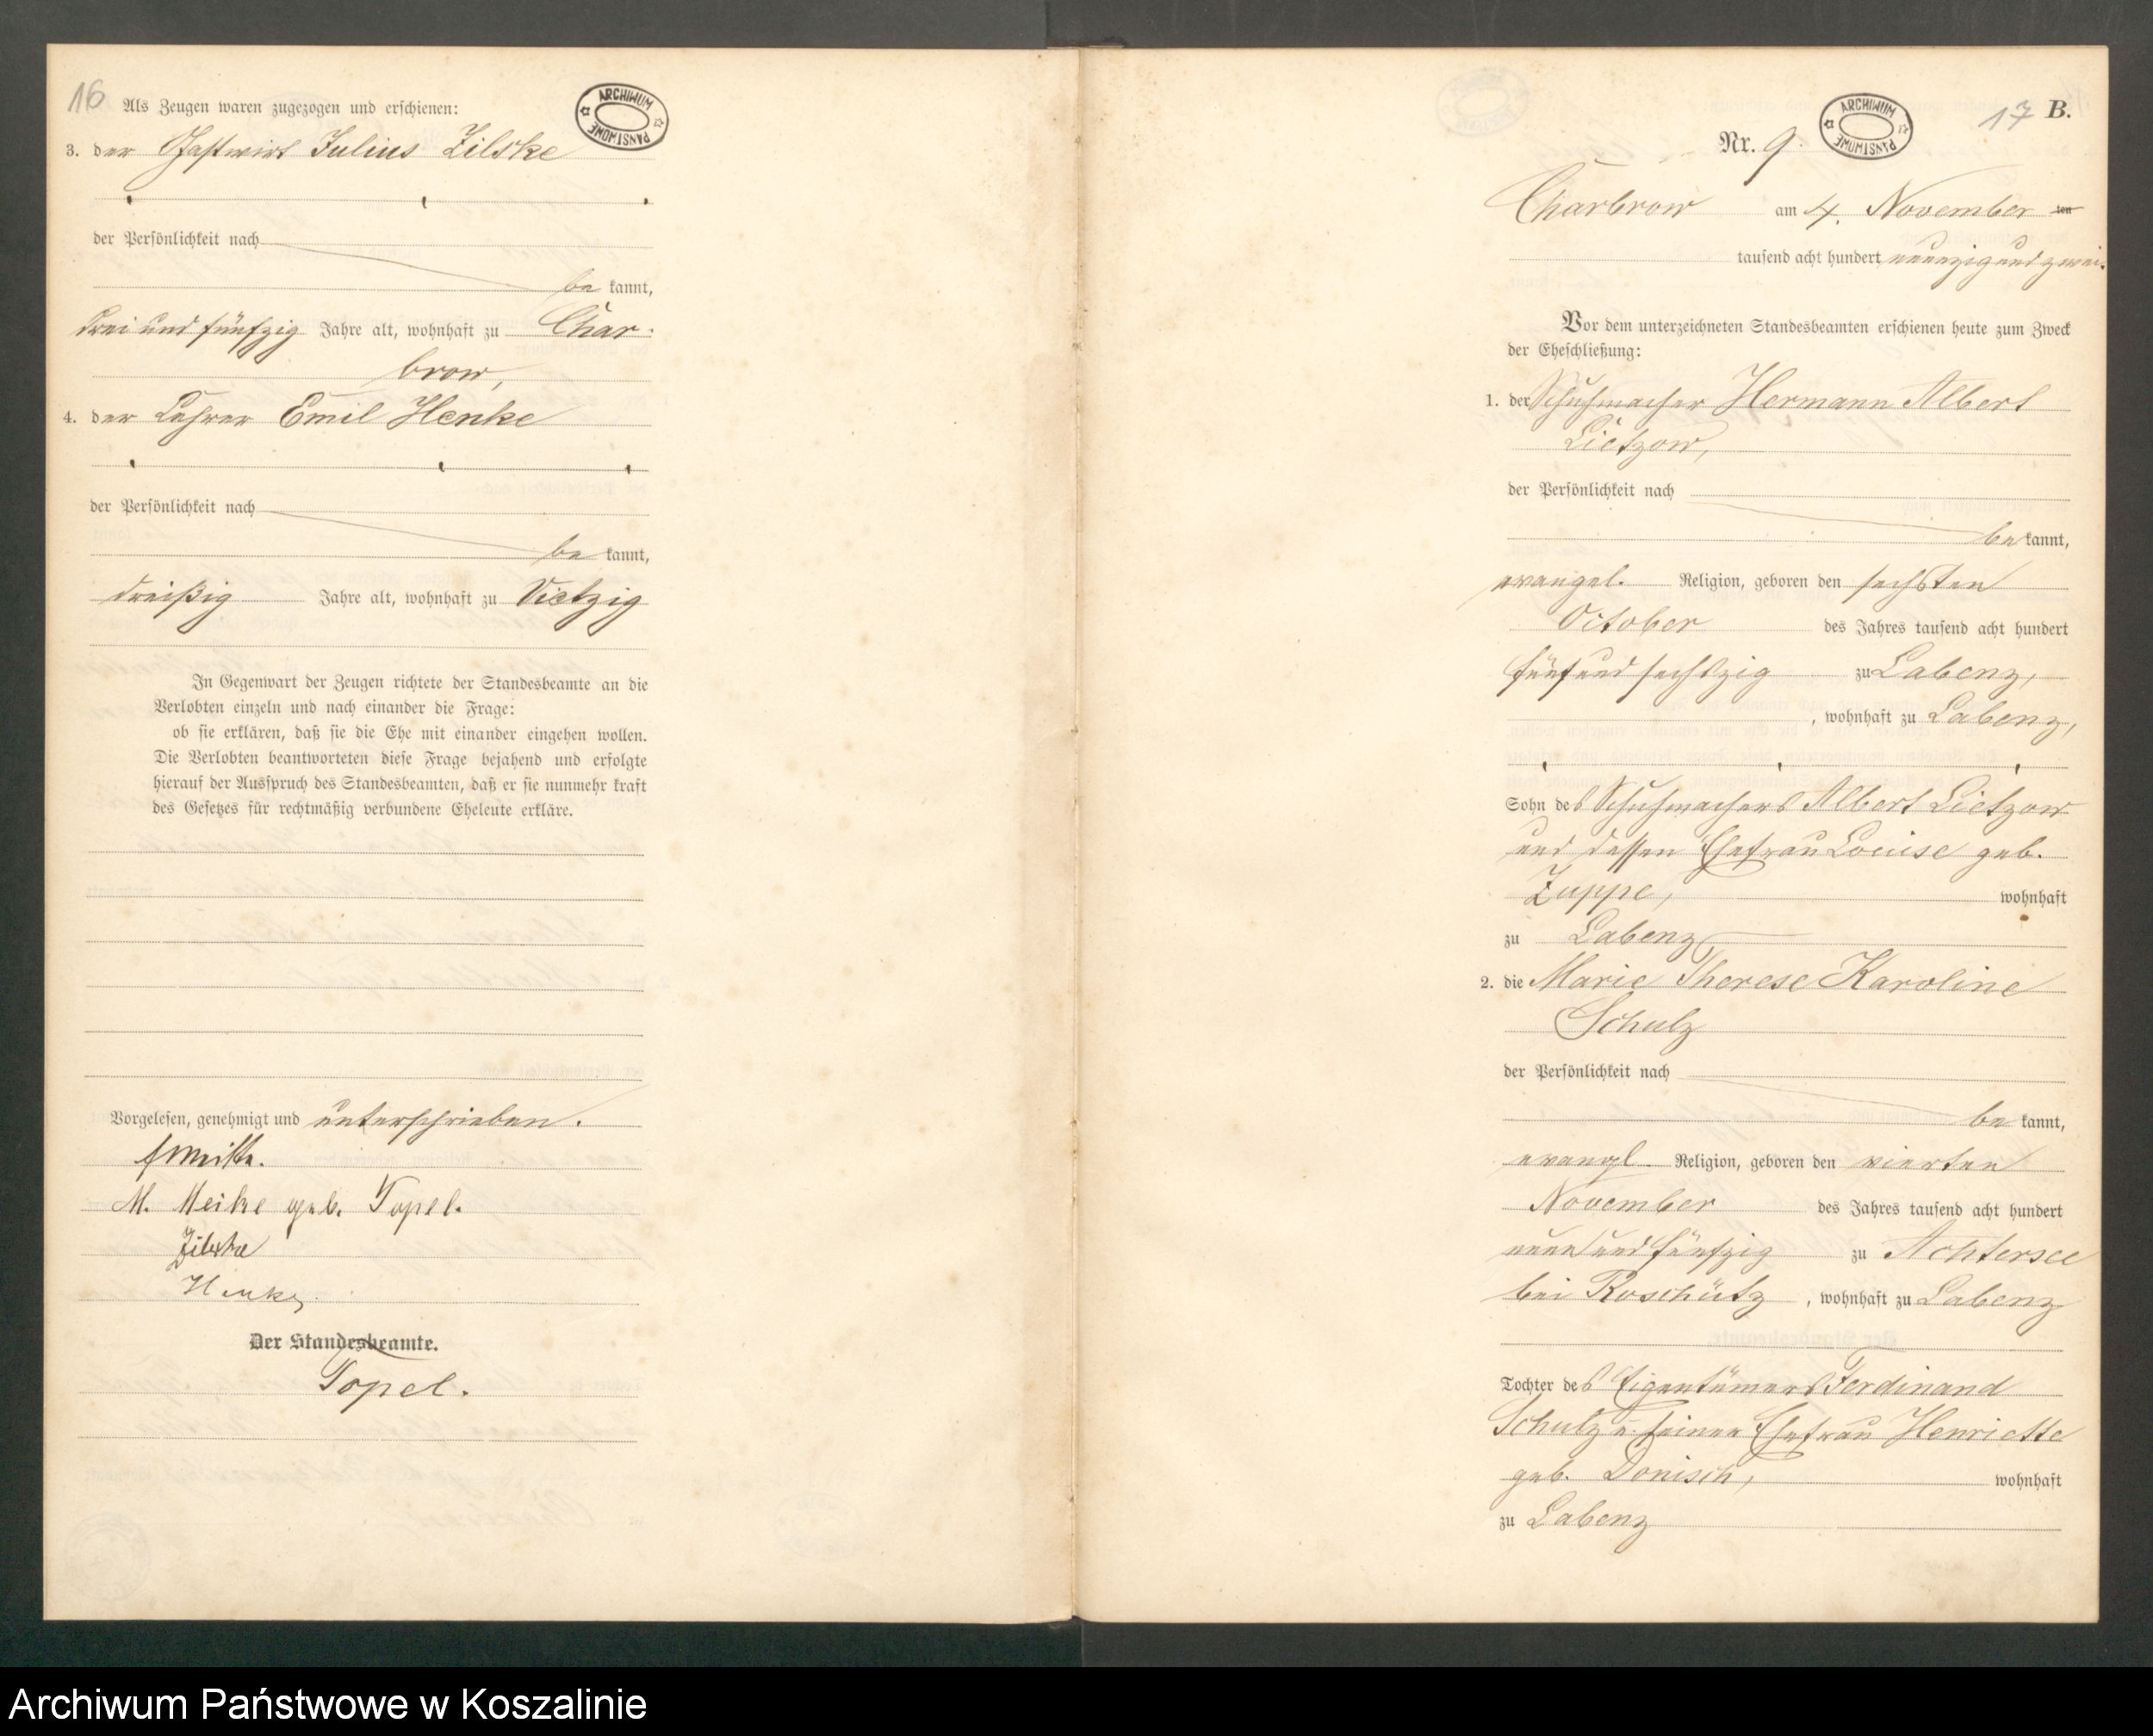 16
Als Zeugen waren zugezogen und erschienen:
ARCHIWUM PAŃSTWOWE
3. der Gastwirt Julius Zilske
der Persönlichkeit nach
be kannt,
drei und fünfzig Jahre alt, wohnhaft zu Char-
brow,
4. der Lehrer Emil Henke
der Persönlichkeit nach
be kannt,
dreißig Jahre alt, wohnhaft zu Vietzig
In Gegenwart der Zeugen richtete der Standesbeamte an die
Verlobten einzeln und nach einander die Frage:
ob sie erklären, daß sie die Ehe mit einander eingehen wollen.
Die Verlobten beantworteten diese Frage bejahend und erfolgte
hierauf der Ausspruch des Standesbeamten, daß er sie nunmehr kraft
des Gesetzes für rechtmäßig verbundene Eheleute erkläre.
Vorgelesen, genehmigt und unterschrieben.
M. Meike geb. Topel.
Zilske
Henke
Der Standesbeamte.
Topel.
17 B.
ARCHIWUM PAŃSTWOWE
Nr. 9.
Charbrow am 4. November ten
tausend acht hundert neunzig und zwei.
Vor dem unterzeichneten Standesbeamten erschienen heute zum Zweck
der Eheschließung:
1. der Schuhmacher Hermann Albert
Lietzow,
der Persönlichkeit nach
be kannt,
evangel. Religion, geboren den sechsten
October des Jahres tausend acht hundert
fünf und sechszig zu Labenz,
, wohnhaft zu Labenz,
Sohn des Schuhmachers Albert Lietzow
und dessen Ehefrau Louise geb.
Zuppe, wohnhaft
zu Labenz
2. die Marie Therese Karoline
Schulz
der Persönlichkeit nach
be kannt,
evangl. Religion, geboren den vierten
November des Jahres tausend acht hundert
neun und fünfzig zu Achtersee
bei Roschütz, wohnhaft zu Labenz
Tochter des Eigentümers Ferdinand
Schulz u. seiner Ehefrau Henriette
geb. Donisch, wohnhaft
zu Labenz
Archiwum Państwowe w Koszalinie